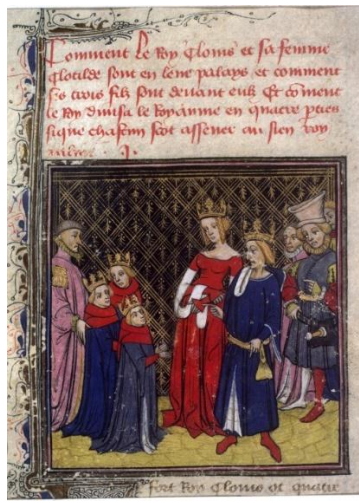 Comment le Roy Clovis et sa femme
Clotilde sont en leur palays et comment
ses trois filz sont devant eulz Et coment
le Roy divisa le Royaume en quatre pties
si que chascun scot assener au sien roy
aulme
fort Roy Clovis ot quatre